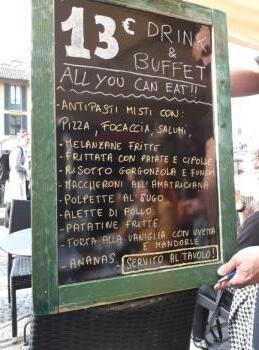 13€ DRINK
&
BUFFET
ALL YOU CAN EAT!!
- ANTIPASTI MISTI CON:
PIZZA, FOCACCIA, SALUMI,
- MELANZANE FRITTE
- FRITTATA CON PATATE E CIPOLLE
- RISOTTO GORGONZOLA E FUNGHI
- MACCHERONI ALL'AMATRICIANA
- POLPETTE AL SUGO
- ALETTE DI POLLO
- PATATINE FRITTE
- TORTA ALLA VANIGLIA CON UVETTA
E MANDORLE
- ANANAS. SERVITO AL TAVOLO!